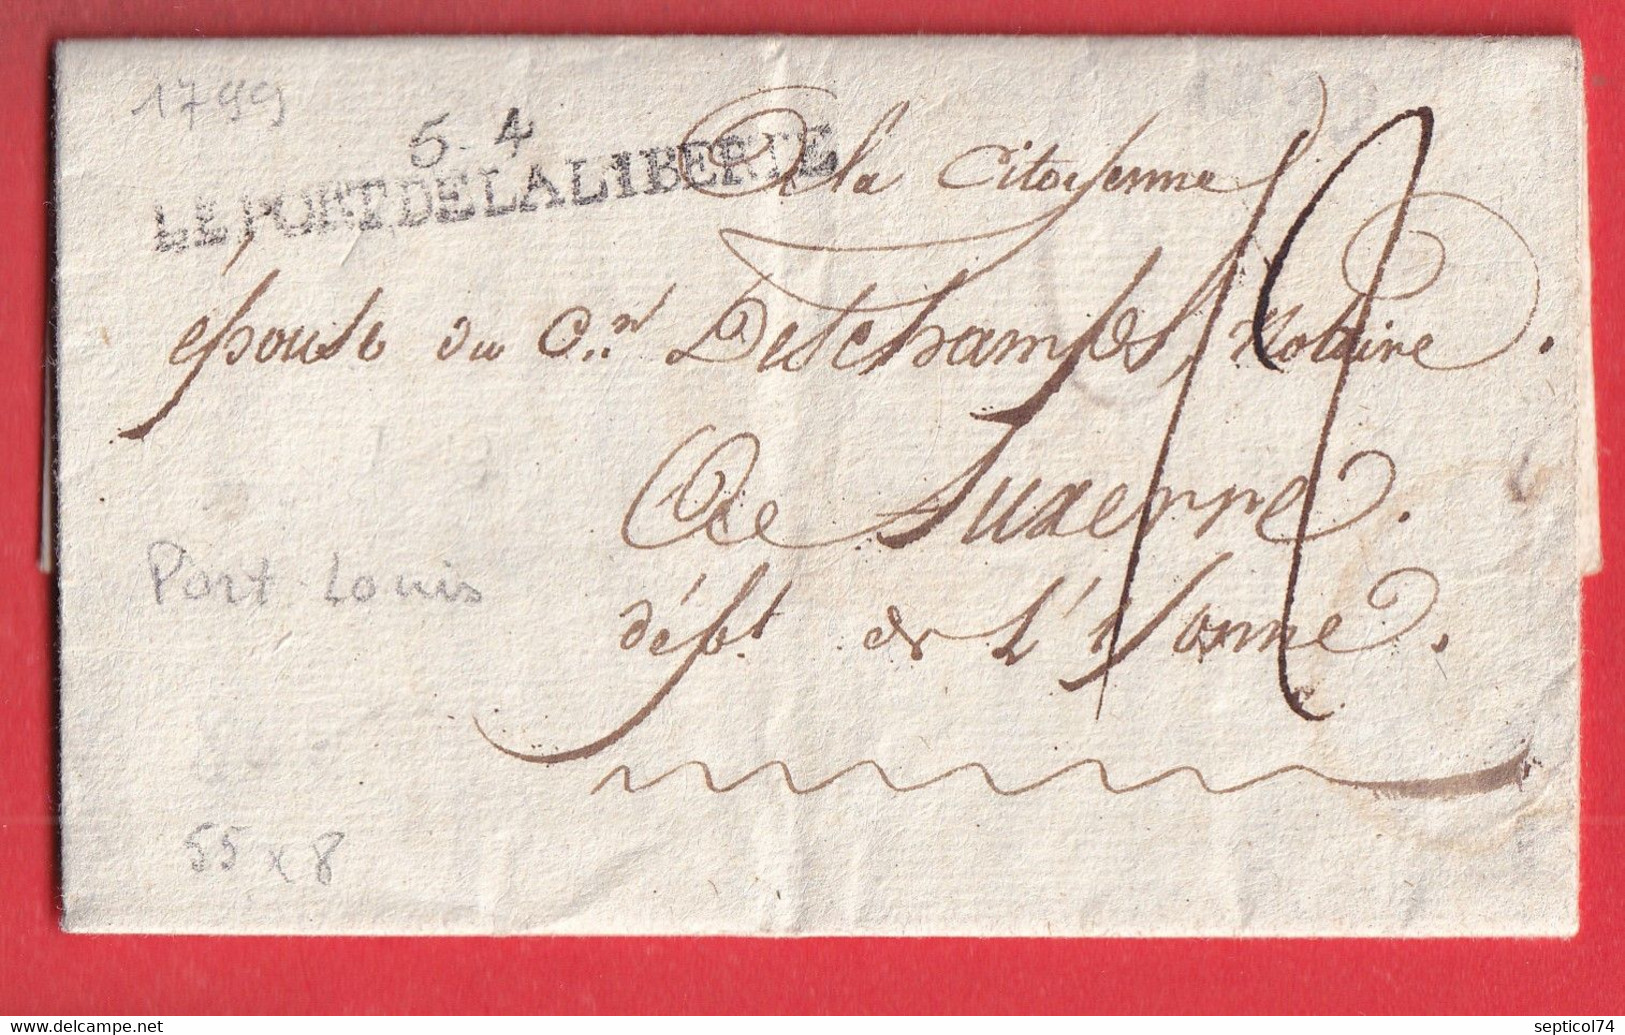 1799
54
LE PORT DE LA LIBERTE
A la Citoyenne
épouse du C.en Deschamps, Notaire.
A Auxerre.
dépt. de L'Yonne.
Port Louis
55 x 8
www.delcampe.net
septicol74